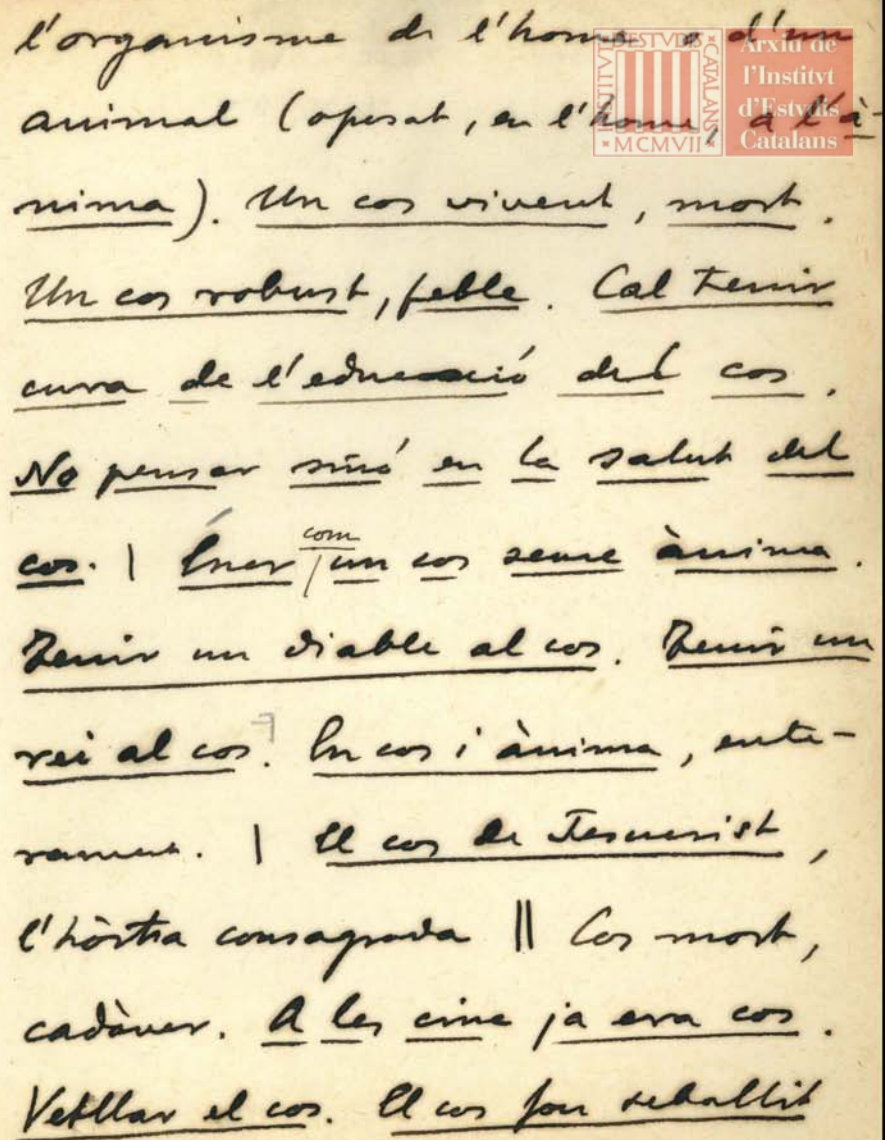 l'organisme de l'home o d'un
animal (oposat, en l'home, a l'à-
nima). Un cos vivent, mort.
Un cos robust, feble. Cal tenir
cura de l'educació del cos.
No pensar sinó en la salut del
cos. | Ésser com un cos sense ànima.
Tenir un diable al cos. Tenir un
rei al cos. En cos i ànima, ente-
rament. | El cos de Jesucrist,
l'hòstia consagrada || Cos mort,
cadàver. A les cinc ja era cos.
Vetllar el cos. El cos fou sebollit
INSTITVT D'ESTVDIS CATALANS
MCMVII
Arxiu de
l'Institvt
d'Estvdis
Catalans